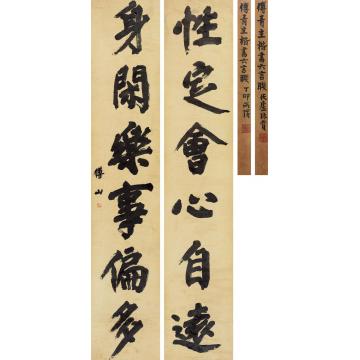 傅青主楷書六言聯
傅青主楷書六言聯 丁卯
性定會心自遠
身閑樂事偏多
傅山